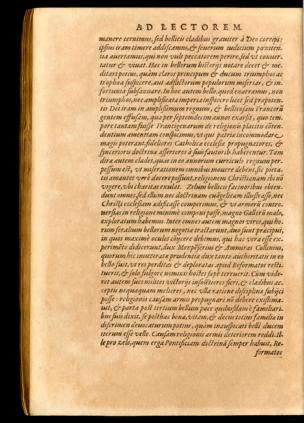 AD LECTOREM
manere cernimus, sed bellicis cladibus grauiter à Deo corripi:
ipsius iram timere addiscamus, & seuerum iudicium pœniten-
tia auertamus, qui non vult peccatorem perire, sed vt conuer-
tatur & viuat. Hæc in bellorum historiis notare decet & me-
ditari potius, quàm claros principum & ducum triumphos ac
trophæa suspicere, aut adflictorum populorum miserias, & in-
fortunia subsannare. In hoc autem bello, quod enarramus, non
triumphos, nec amplificata imperia inspicere licet sed
to Dei iram in amplissimum regnum, & bellicosam Francorū
gentem effusam, quo per septemdecim annos exarsit, quo tem-
pore tantam fuisse Francigenarum de religionis placitis
dentium amentiam conspicimus, vt qui patriæ incommoda
magis poterant fidelitores Catholicæ ecclesiæ propugnatores, &
syncerioris doctrinæ assertores à suis fautoris haberentur. Tam
dira autem clades, quas in eo annorum curriculo regnum per-
possum est, vt miserationem omnibus mouere debent, sic pieta-
tis amantes verè docere possunt, religionem Christianam ibi nō
vigere, vbi charitas exulat. Zelum bellicis facinoribus obten-
dunt omnes, sed illum nec doctrinam euangelicam illustrasse, nec
Christi ecclesiam ædificasse comperimus, & vt armorū contro-
uersias in religione minimè componi posse, magno Galliæ malo,
exploratum habemus. Inter causas autem magnas varias, quibus
rerum feralium bellorum negotia tractarunt, duo sunt præcipui,
in quos maximè oculos coniicere debemus, qui hæc vera esse ex-
perimēto didicerunt, dux Memprelius & Ammiras Collinius,
quorum hic
bello fuit, vt res perditas & deploratas apud Reformatos resti-
tueret, & solo fulgore nominis hostes sæpe terruerit. Cum vide-
ret autem suos milites victoriis insolētiores fieri, & cladibus ac-
ceptis nequaquam meliores, nec vlla ratione disciplinæ subiici
posse: religionis causam armis propugnari nō debere existima-
uit, & parta post tertium bellum pace quibusdam è familiari-
bus suis dixit, se posthac bona, vitam, & decus totius familiæ in
discrimen deuocaturum potius, quàm inauspicati belli ducem
iterum esse velle. Causam religionis armis deteriorem reddi. Il-
le pro zelo, quem erga Pontificiam doctrinā semper habuit, Re-
formatos